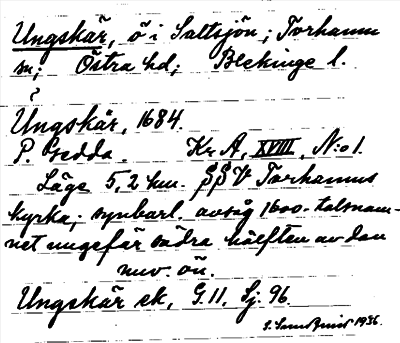 Ungskär, ö i Saltsjön; Torhamn
sn; Östra hd; Blekinge l.
?
Ungskär, 1684.
P. Gedda. Kr A, XVIII, N:o 1.
Läge 5,2 km. SSV Torhamns
kyrka; synbarl. avsåg 1600-talsnam-
net ungefär södra hälften av den
nuv. ön.
Ungskär ek, G. 11, Sj. 96
1936.